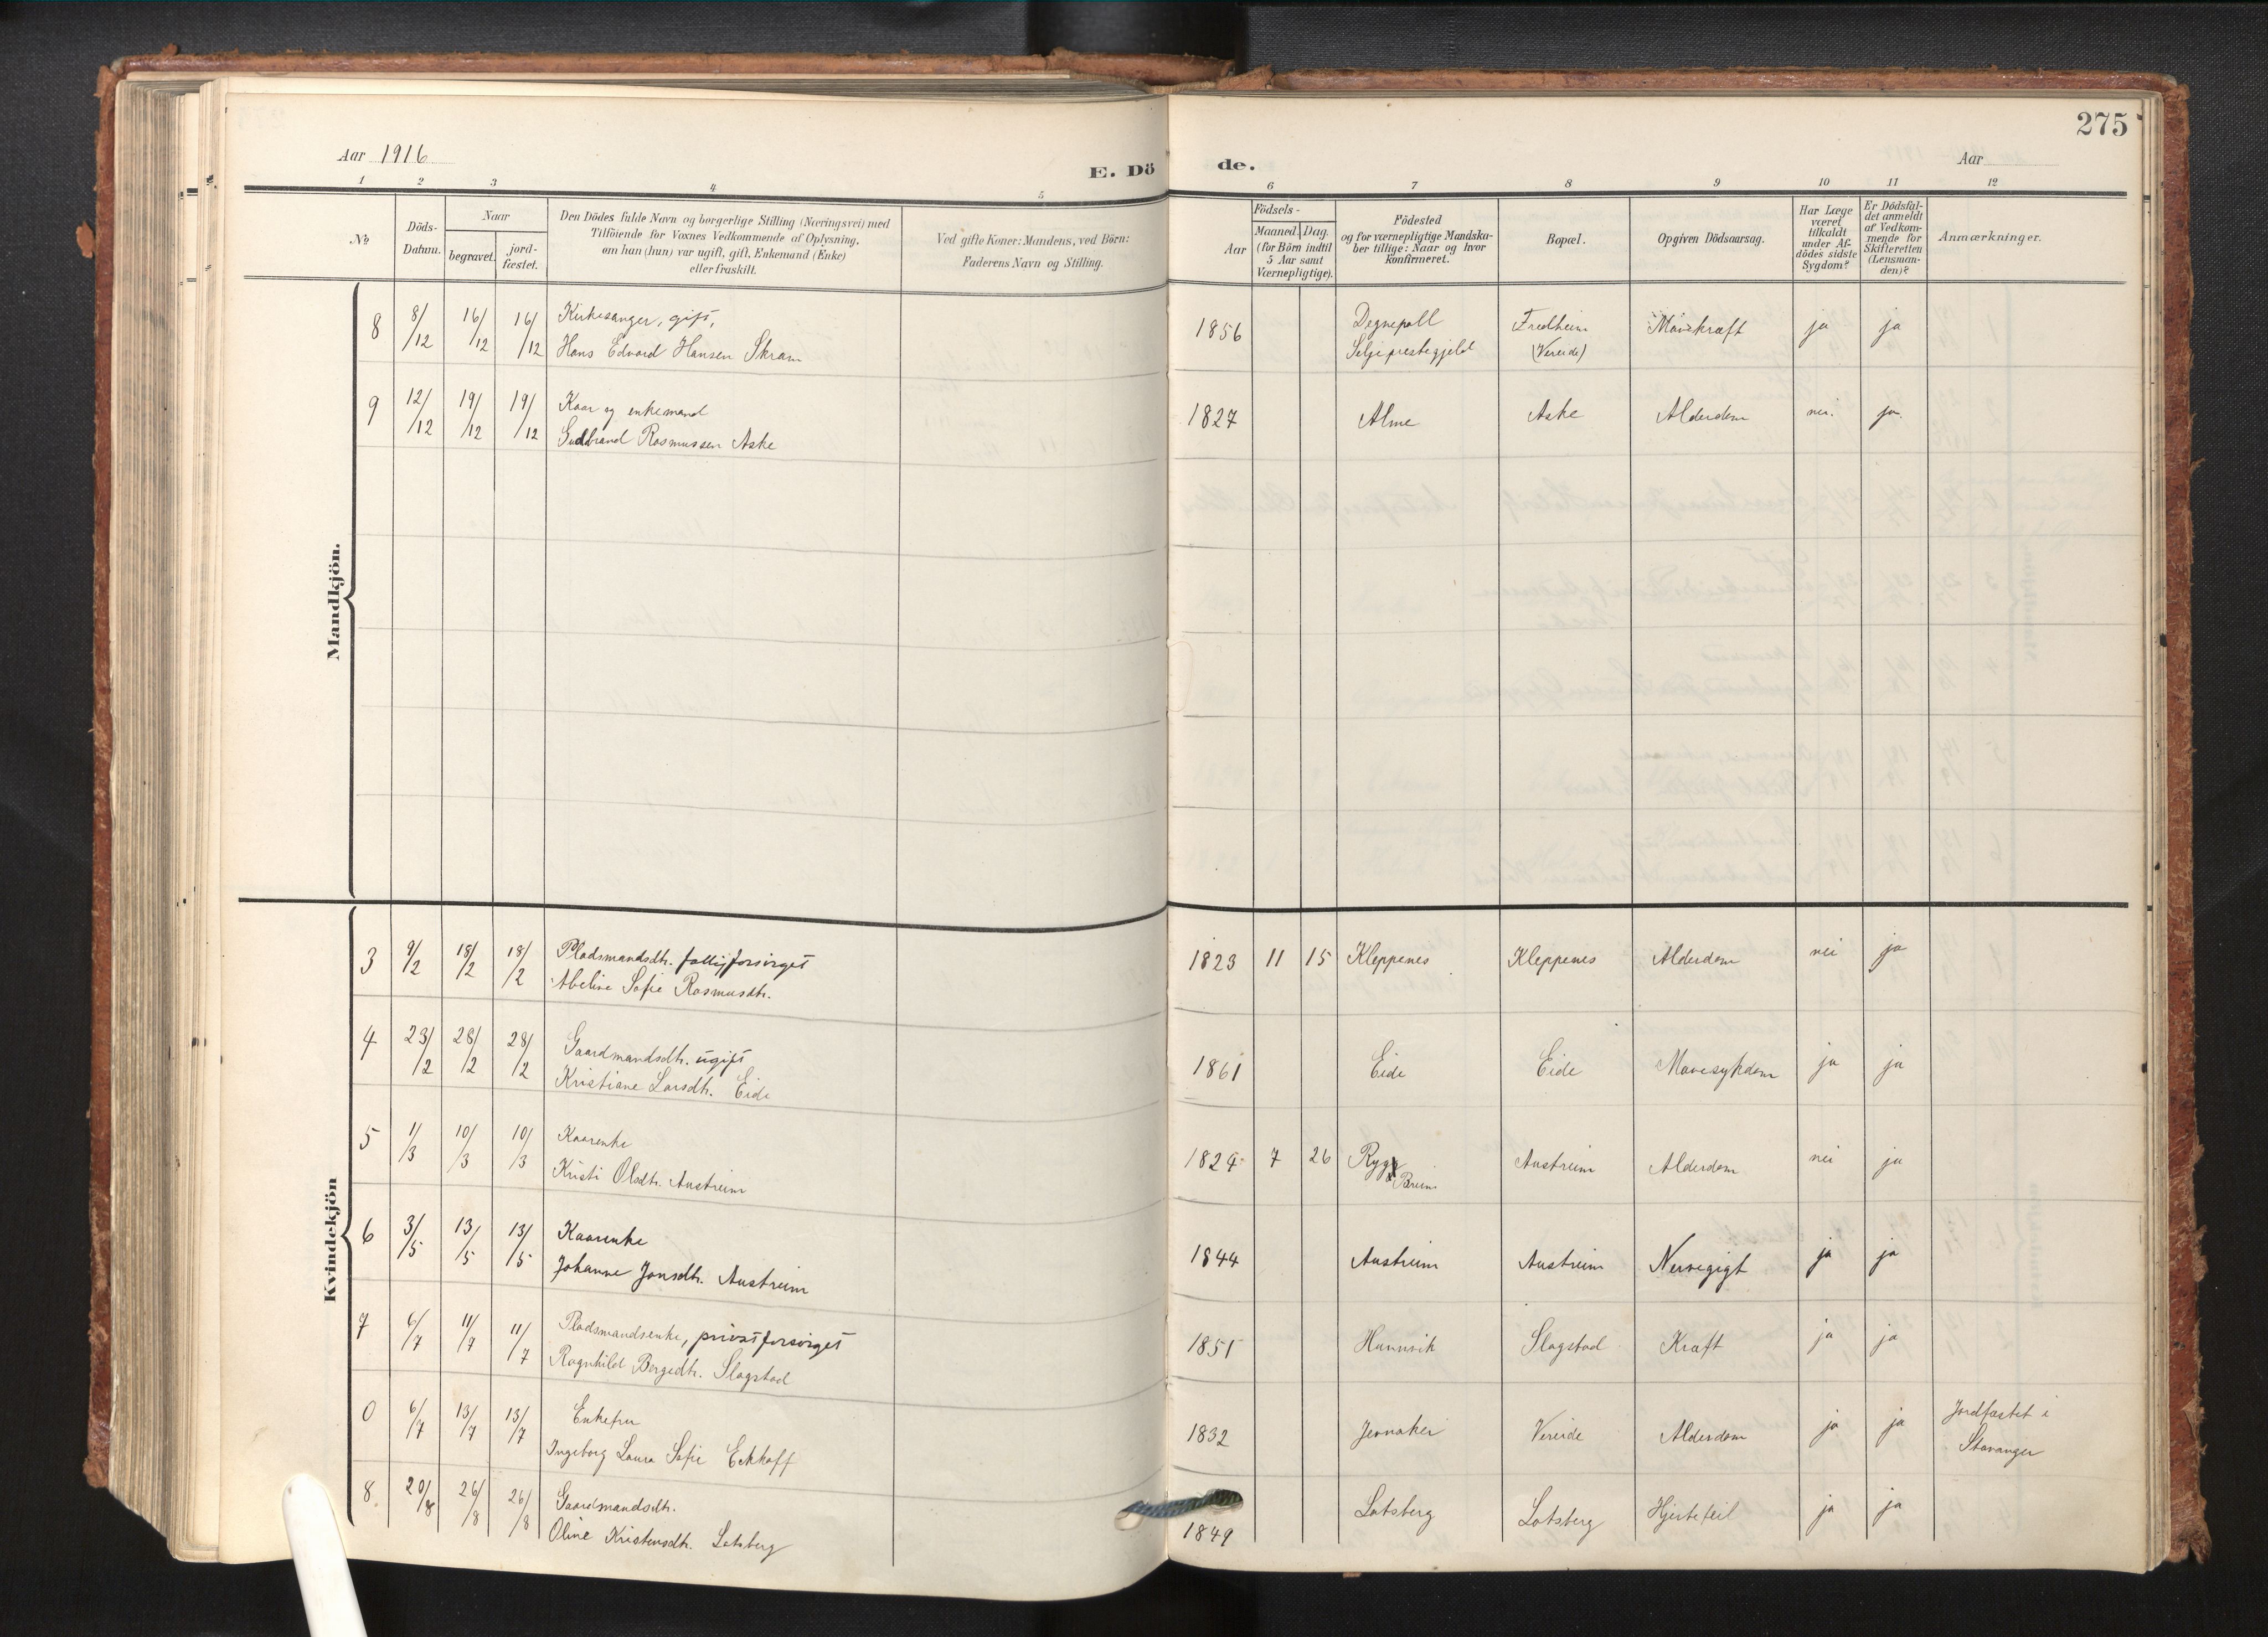 275
Aar 1916
E. Dö de.
Aar
1 2 3 4 5 6 7 8 9 10 11 12
No
Döds-
Datum.
Naar
begravet.
jord-
fæstet.
Den Dödes fulde Navn og borgerlige Stilling (Næringsvei) med
Tilföiende for Voxnes Vedkommende af Oplysning,
om han (hun) var ugift, gift, Enkemand (Enke)
eller fraskilt.
Ved gifte Koner: Mandens, ved Börn:
Faderens Navn og Stilling.
Födsels-
Aar
Maaned. Dag.
(for Börn indtil
5 Aar samt
Værnepligtige).
Födested
og for værnepligtige Mandska-
ber tillige: Naar og hvor
konfirmeret.
Bopæl.
Opgiven Dödsaarsag.
Har Læge
været
tilkaldt
under Af-
dödes sidste
Sygdom?
Er Dödsfal-
det anmeldt
af Vedkom-
mende for
Skifteretten
(Lensman-
den)?
Anmærkninger.
Mandkjön.
8 8/12 16/12 16/12 Kirkesanger, gift, 1856 Degnepoll Fredheim Mavekræft ja ja
Hans Edvard Hansen Skram Selje prestegjeld (Vereide)
9 12/12 19/12 19/12 Kaar og enkemand 1827 Alme Aske Alderdom nei. ja.
Gudbrand Rasmussen Aske
Kvindekjön
3 9/2 18/2 18/2 Pladsmandsdtr. fattigforsörget 1823 11 15 Kleppenes Kleppenes Alderdom nei ja
Abeline Sofie Rasmusdtr.
4 23/2 28/2 28/2 Gaardmandsdtr. ugift 1861 Eide Eide Mavesykdom ja ja
Kristiane Larsdtr. Eide
5 1/3 10/3 10/3 Kaarenke 1824 7 26 Rygg Austreim Alderdom nei ja
Kristi Olsdtr. Austreim Breim
6 3/5 13/5 13/5 Kaarenke 1844 Austreim Austreim Nervegigt ja ja
Johanne Jonsdtr. Austreim
7 6/7 11/7 11/7 Pladsmandsenke, privatforsörget 1851 Hunnvik Slagstad Kræft ja ja
Ragnhild Bergedtr. Slagstad
0 6/7 13/7 13/7 Enkefru 1832 Jevnaker Vereide Alderdom ja ja Jordfæstet i
Ingeborg Laura Sofie Eckhoff Stavanger
8. 20/8 26/8 26/8 Gaardmandsdtr. 1849 Lotsberg Lotsberg Hjertefeil ja ja
Oline Kristensdtr. Lotsberg